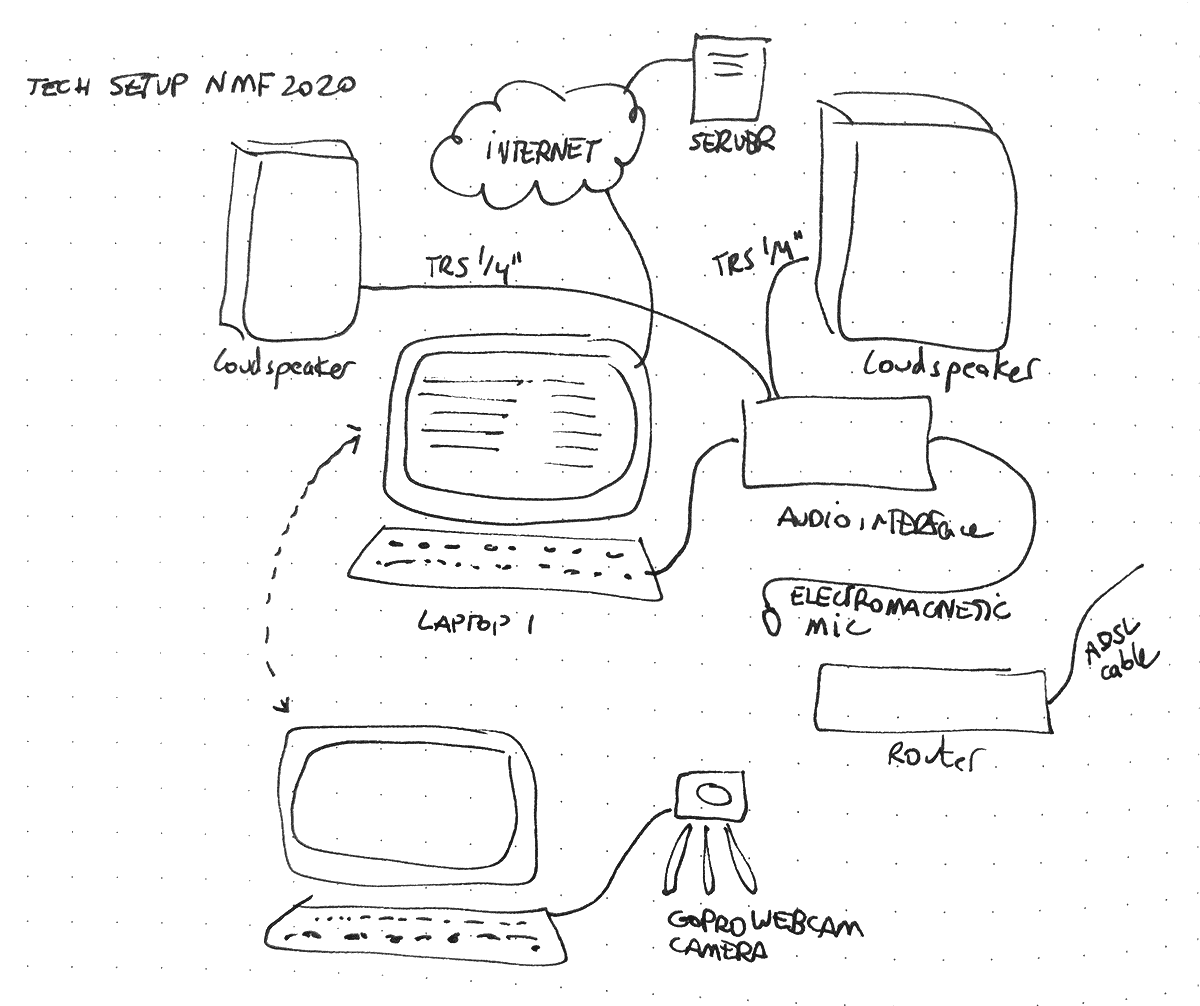 TECH SETUP NMF2020
INTERNET
SERVER
TRS 1/4"
TRS 1/4"
Loudspeaker
Loudspeaker
AUDIO INTERFace
LAPTOP 1
ELECTROMAGNETIC
MIC
ADSL
cable
Router
GOPRO WEBCAM
CAMERA